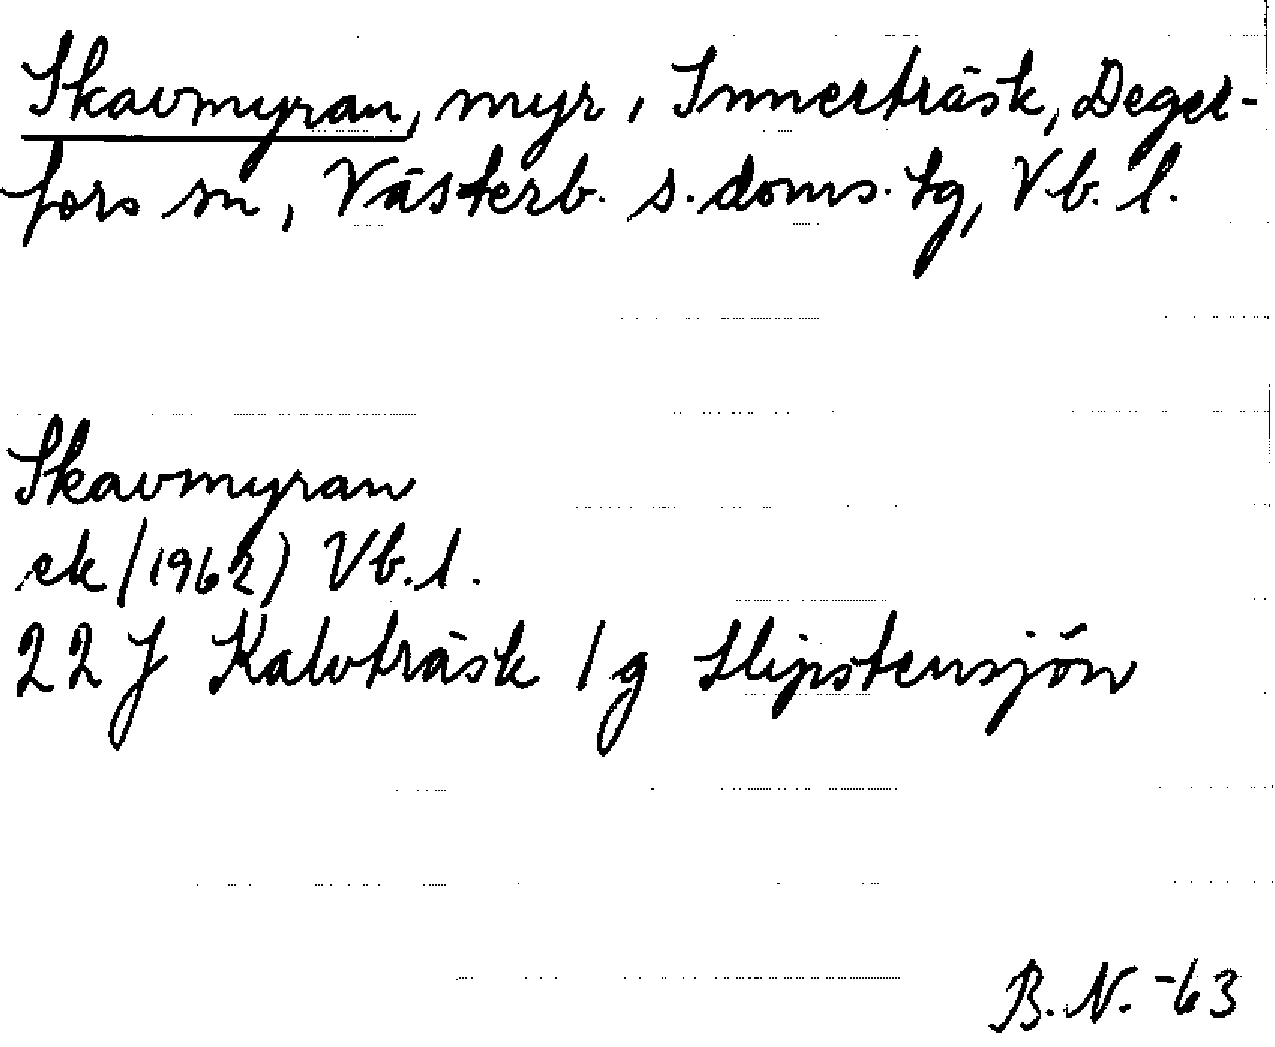 Skavmyran, myr, Innerträsk, Deger-
fors sn, Västerb. s. doms. tg, Vb. l.
Skavmyran
ek (1962) Vb. l.
22 J Kalvträsk 1 g Slipstensjön
B.N. -63